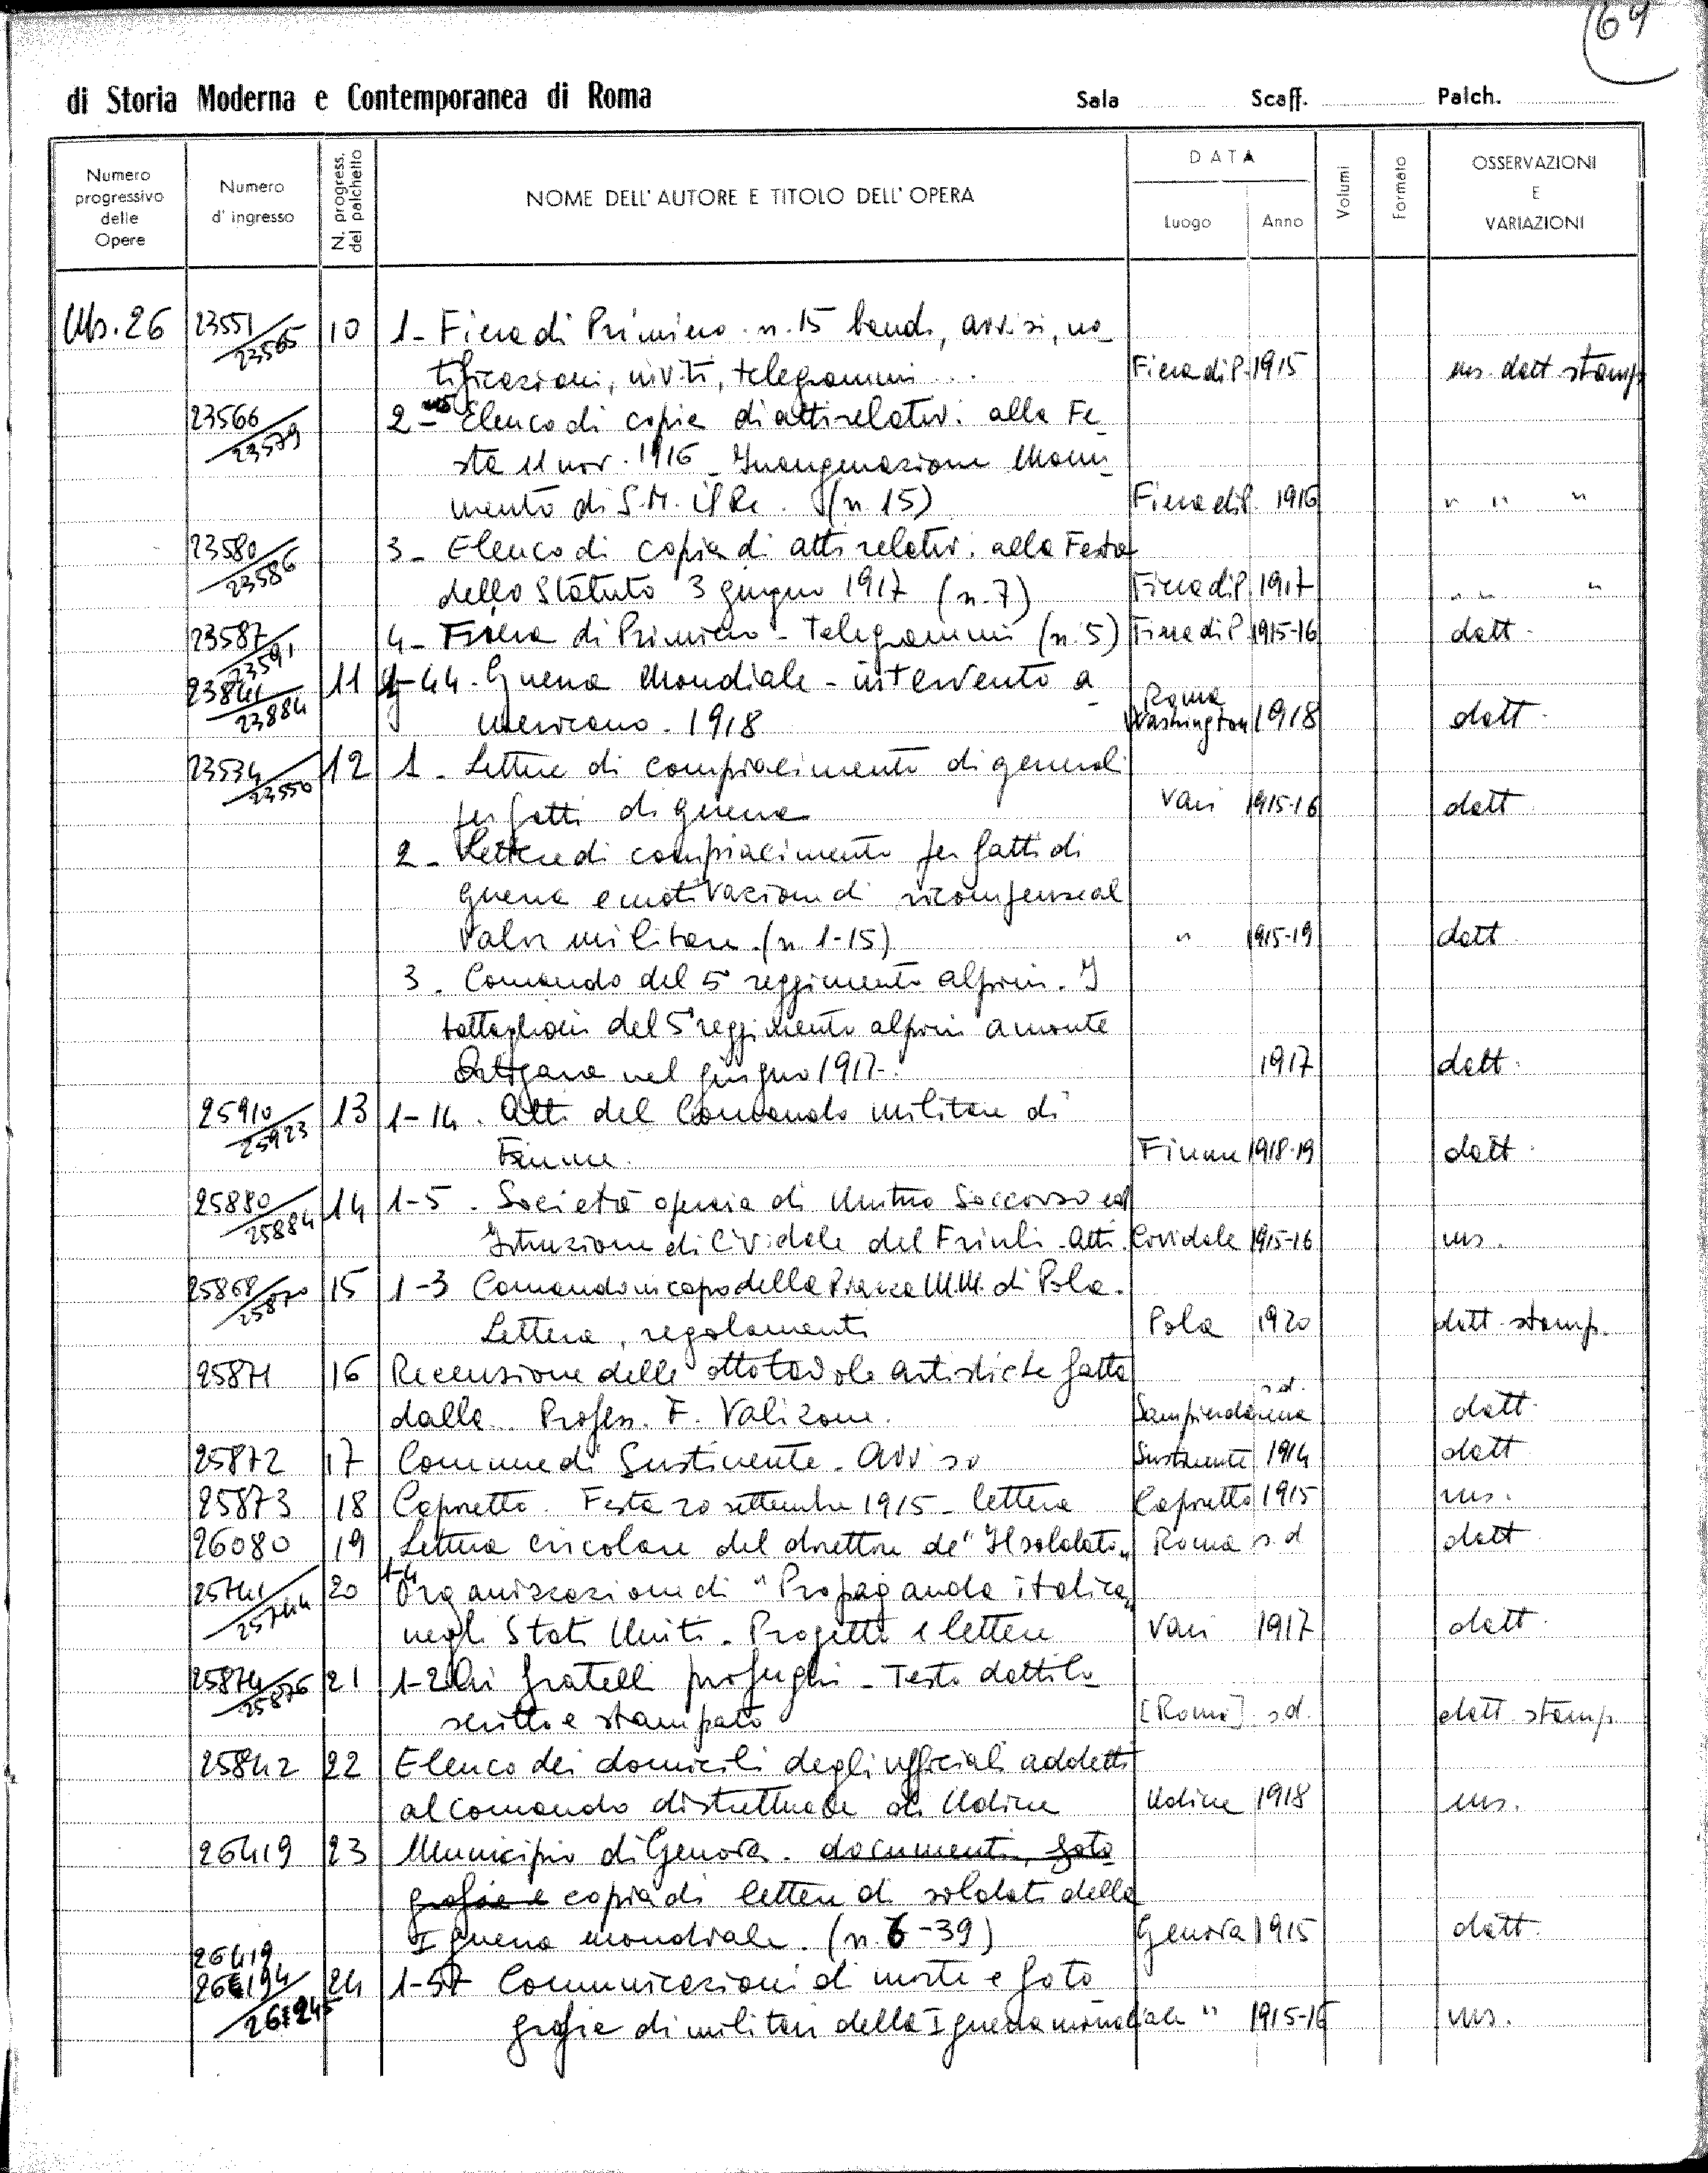 169
di Storia Moderna e Contemporanea di Roma Sala Scaff. Palch.
Numero progressivo delle Opere
Numero d' ingresso
N. progress. del palchetto
NOME DELL' AUTORE E TITOLO DELL' OPERA
DATA
Luogo Anno
Volumi
Formato
OSSERVAZIONI E VARIAZIONI
Ms. 26 23551/23565 10 1- Fiera di Primiero. n. 15 bandi, avvisi, no
tificazioni, inviti, telegrammi... Fiera di P. 1915 ms. datt stamp
23566/23579 2- Elenco di copia di atti relativi alla Fe
sta 11 nov. 1916 - Inaugurazione Monu
mento di S.M. il Re. (n. 15) Fiera di P. 1916 " " "
23580/23586 3- Elenco di copia di atti relativi alla Festa
dello Statuto 3 giugno 1917 (n. 7) Fiera di P. 1917 " " "
23587/23591 4- Fiera di Primiero - Telegrammi (n. 5) Fiera di P. 1915-16 datt.
23841/23884 11 1-44. Guerra Mondiale - intervento a
mericano. 1918 Roma Washington 1918 datt.
23534/23550 12 1- Lettere di compiacimento di generali
per fatti di guerra Vari 1915-16 datt.
2- Lettere di compiacimento per fatti di
guerra e motivazioni di ricompense al
valor militare. (n. 1-15) " 1915-19 datt
3. Comando del 5° reggimento alpini. I
battaglioni del 5° reggimento alpini a monte
Ortigara nel giugno 1917. 1917 datt.
25910/25923 13 1-14. Atti del Comando militare di
Fiume. Fiume 1918-19 datt.
25880/25884 14 1-5. Società operaia di Mutuo Soccorso ed
Istruzione di Cividale del Friuli. Atti. Cividale 1915-16 ms.
25868/25870 15 1-3 Comando in capo della Piazza M.M. di Pola.
Lettera, regolamenti Pola 1920 datt. stamp.
25871 16 Recensione delle otto tavole artistiche fatta
dalla Profess. F. Valizone. Sampierdarena s.d. datt.
25872 17 Comune di Sustinente. Avviso Sustinente 1914 datt
25873 18 Caporetto. Festa 20 settembre 1915 - lettera Caporetto 1915 ms.
26080 19 Lettera circolare del direttore de "Il soldato" Roma s.d datt.
25741/25744 20 1-4 Organizzazione di "Propaganda italica"
negli Stati Uniti - Progetti e lettere Vari 1917 datt.
25874/25876 21 1-2 Ai fratelli profughi - Testo dattilo
scritto e stampato [Roma] s.d. datt. stamp.
25842 22 Elenco dei domicili degli ufficiali addetti
al comando distrettuale di Udine Udine 1918 ms.
26419 23 Municipio di Genova. documenti, foto
grafie e copia di lettere di soldati della
I guerra mondiale. (n. 6-39) Genova 1915 datt.
26419
26194/26245 24 1-57 Comunicazioni di morte e foto
grafie di militari della I guerra mondiale " 1915-16 ms.